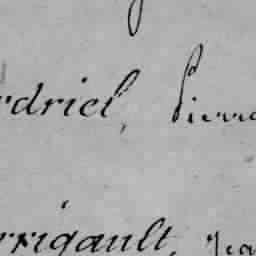 rdriel, Pierre
rrigault, Jea